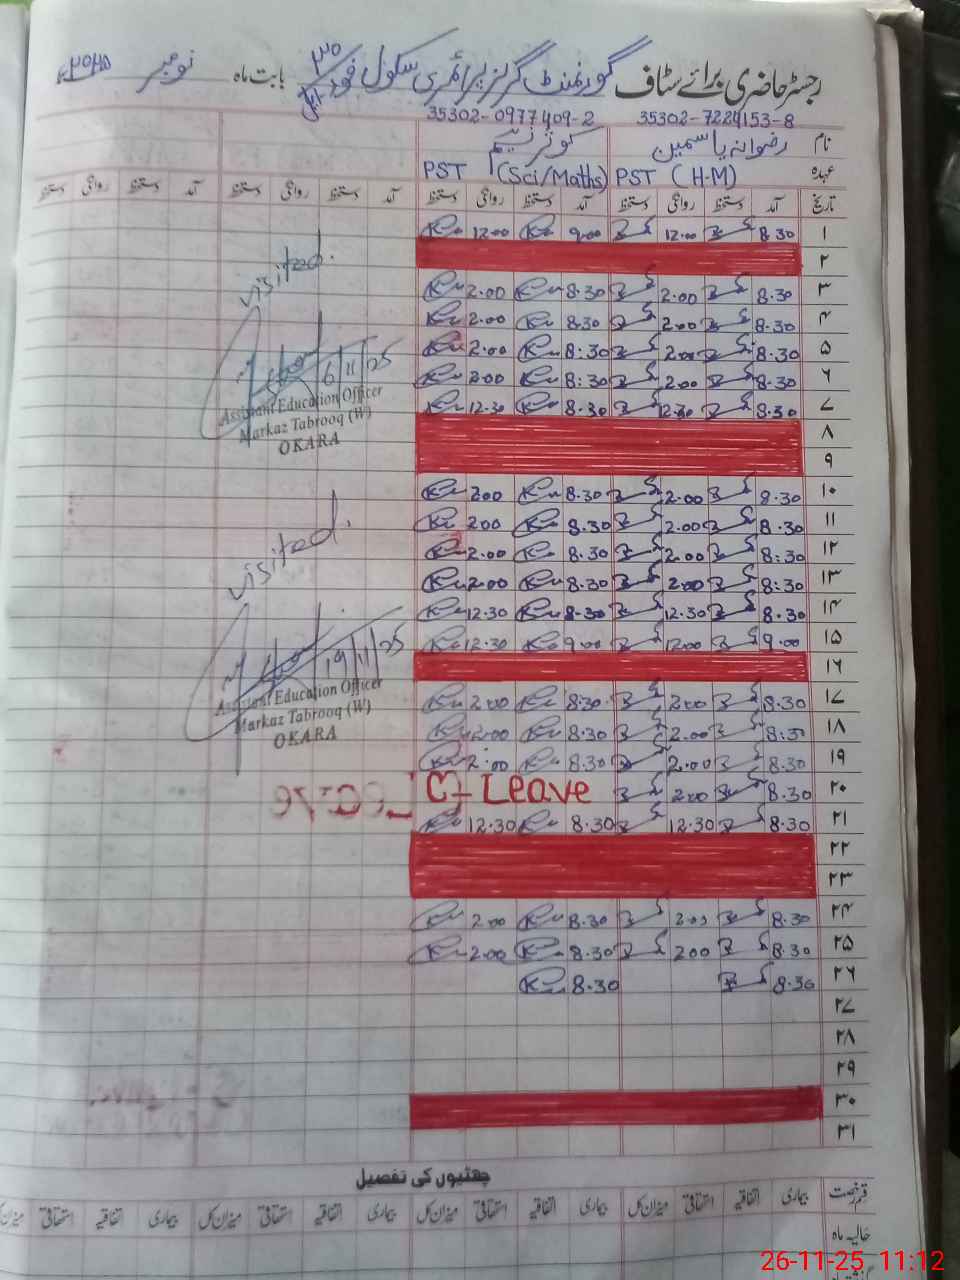 رجسٹر حاضری برائے سٹاف گورنمنٹ گرلز پرائمری سکول بابت ماہ نومبر ۲۰۲۵ء
35302-7224153-8 35302-0977409-2
نام رضوانہ یاسمین کوثر نسیم
عہدہ PST (H-M) PST (Sci/Maths)
تاریخ آمد دستخط روانگی دستخط آمد دستخط روانگی دستخط آمد دستخط روانگی دستخط آمد دستخط روانگی دستخط
۱ 8.30 12.00 9.00 12.00
۲
۳ 8.30 2.00 8.30 2.00
۴ 8.30 2.00 8.30 2.00
۵ 8.30 2.00 8:30 2.00
۶ 8.30 2.00 8:30 2.00
۷ 8.30 12.30 8.30 12.30
۸
۹
۱۰ 8.30 2.00 8.30 2.00
۱۱ 8.30 2.00 8.30 2.00
۱۲ 8:30 2.00 8.30 2.00
۱۳ 8:30 2.00 8.30 2.00
۱۴ 8.30 12.30 8.30 12.30
۱۵ 9.00 12.00 9.00 12.30
۱۶
۱۷ 8.30 2.00 8.30 2.00
۱۸ 8:30 2.00 8.30 2.00
۱۹ 8.30 2.00 8.30 2:00
۲۰ 8.30 2.00 Leave
۲۱ 8.30 12.30 8.30 12.30
۲۲
۲۳
۲۴ 8.30 2.00 8.30 2.00
۲۵ 8.30 2.00 8.30 2.00
۲۶ 8.30 8.30
۲۷
۲۸
۲۹
۳۰
۳۱
visited.
6/11/25
Assistant Education Officer
Markaz Tabrooq (W)
OKARA
visited.
19/11/25
Assistant Education Officer
Markaz Tabrooq (W)
OKARA
چھٹیوں کی تفصیل
قسم رخصت بیماری اتفاقیہ استحقاقی میزان کل بیماری اتفاقیہ استحقاقی میزان کل بیماری اتفاقیہ استحقاقی میزان کل بیماری اتفاقیہ استحقاقی میزان
حالیہ ماہ
26-11-25 11:12